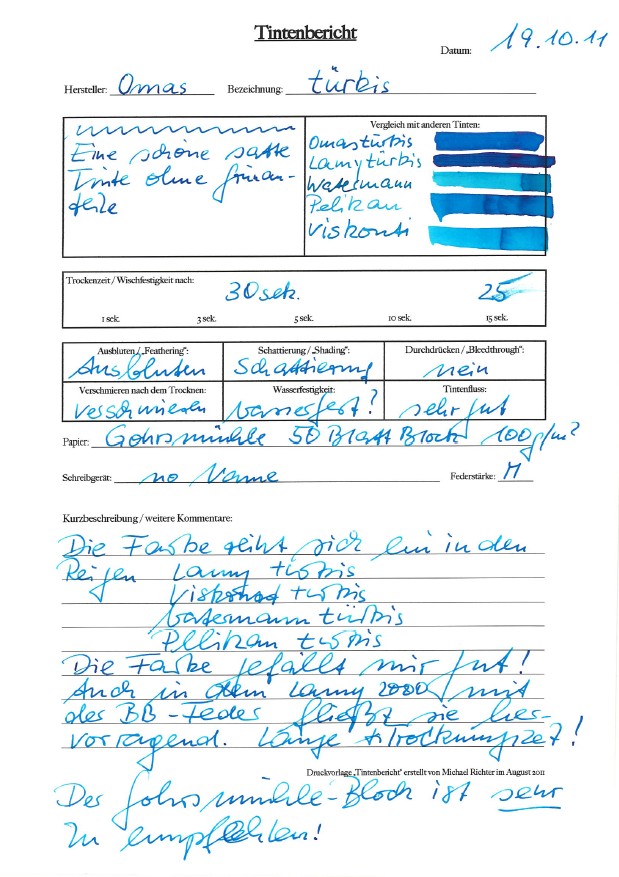 Tintenbericht
Datum: 19.10.11
Hersteller: Omas Bezeichnung: türkis
Eine schöne satte
Tinte ohne grünan-
teile
Vergleich mit anderen Tinten:
Omas türkis
Lamy türkis
Watermann
Pelikan
Viskonti
Trockenzeit / Wischfestigkeit nach:
30 sek. 25
1 sek. 3 sek. 5 sek. 10 sek. 15 sek.
Ausbluten / „Feathering": Schattierung / „Shading": Durchdrücken / „Bleedthrough":
Ausbluten Schattierung nein
Verschmieren nach dem Trocknen: Wasserfestigkeit: Tintenfluss:
verschmieren wasserfest? sehr gut
Papier: Gohrsmühle 50 Blatt Block 100 g/m²
Schreibgerät: no Name Federstärke: M
Kurzbeschreibung / weitere Kommentare:
Die Farbe reiht sich ein in den
Reigen Lamy türkis
türkis
Watermann türkis
Pelikan türkis
Die Farbe gefällt mir gut!
Auch in dem Lamy 2000 mit
der BB-Feder fließt sie her-
vorragend. Lange
Druckvorlage „Tintenbericht" erstellt von Michael Richter im August 2011
Der Gohrsmühle-Block ist sehr
zu empfehlen!